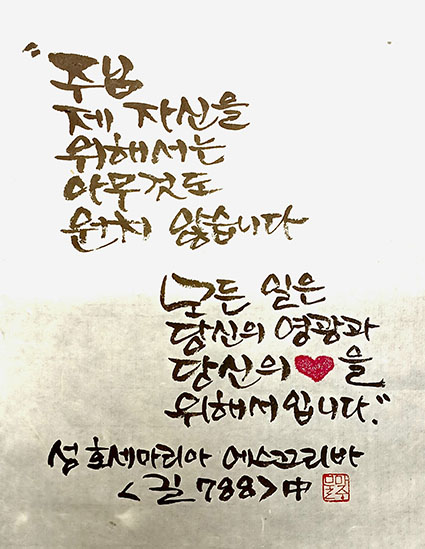 "주님
제 자신을
위해서는
아무것도
원치 않습니다
모든 일은
당신의 영광과
당신의 ♥을
위해서입니다."
성 호세마리아 에스끄리바
<길 788> 中